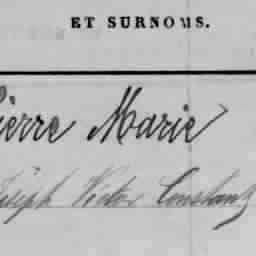 ET SURNOMS.
ierre Marie
Joseph Victor Constant